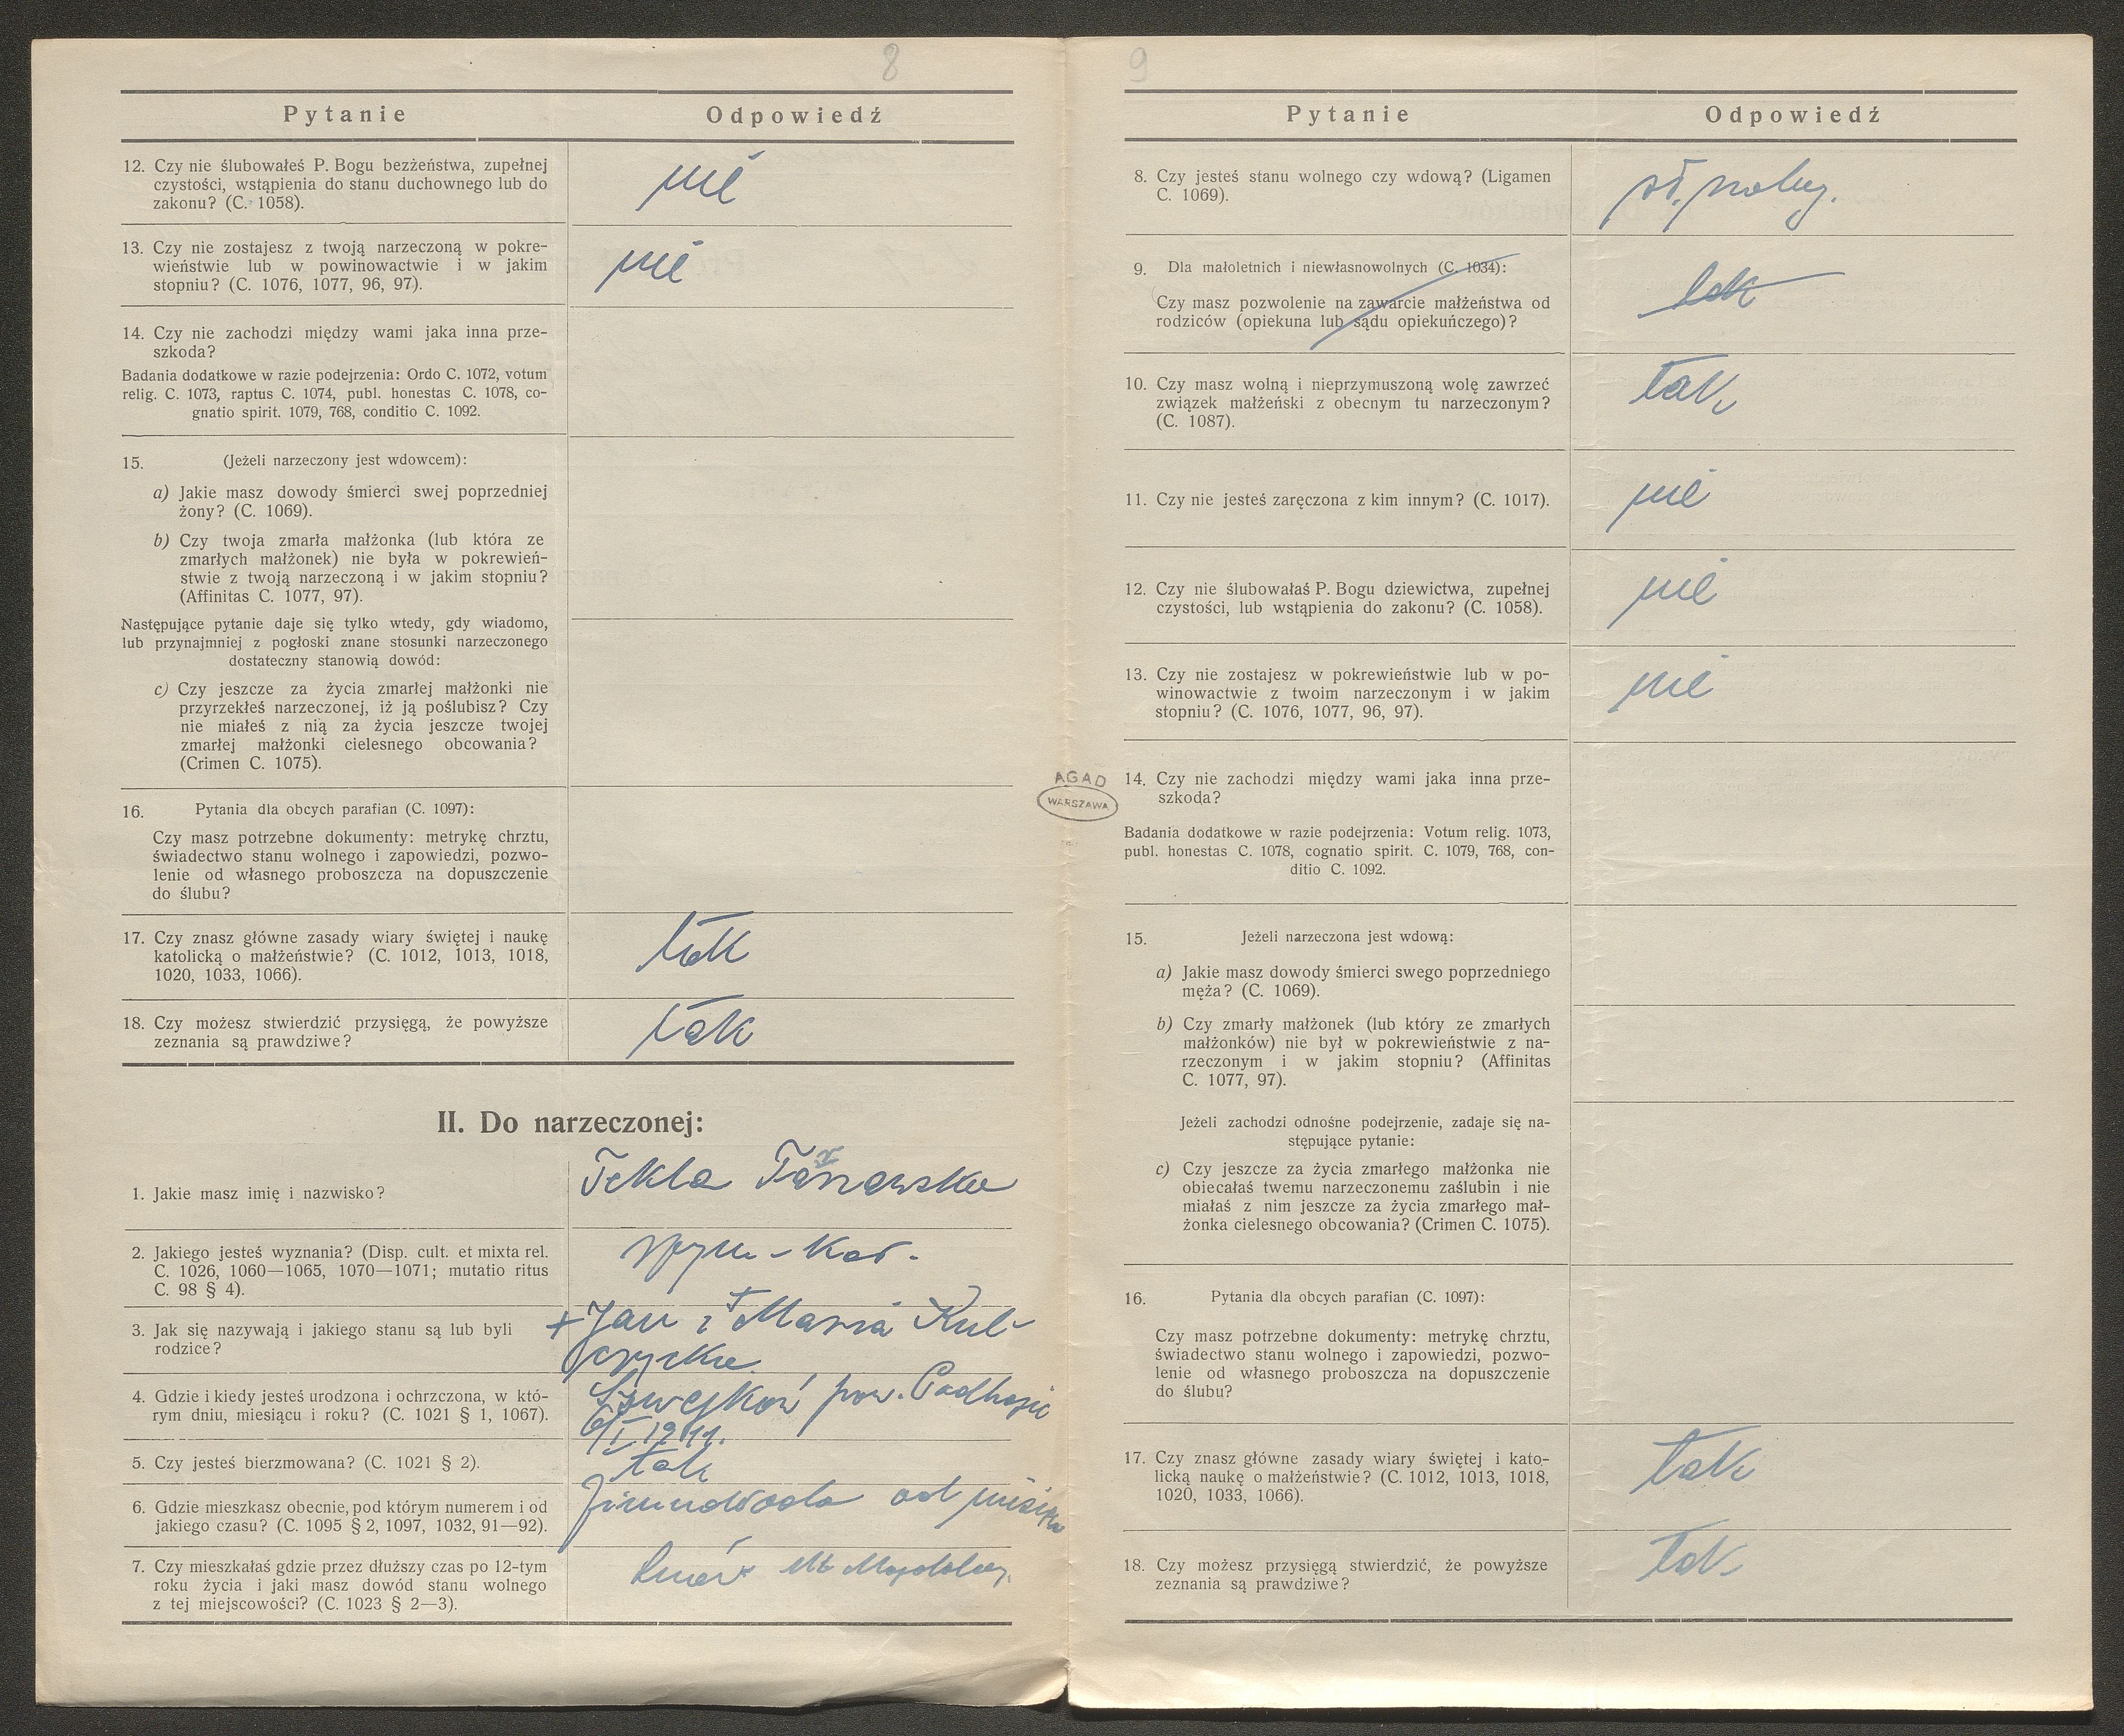 8
Pytanie Odpowiedź
12. Czy nie ślubowałeś P. Bogu bezżeństwa, zupełnej
czystości, wstąpienia do stanu duchownego lub do
zakonu? (C. 1058).
nie
13. Czy nie zostajesz z twoją narzeczoną w pokre-
wieństwie lub w powinowactwie i w jakim
stopniu? (C. 1076, 1077, 96, 97).
nie
14. Czy nie zachodzi między wami jaka inna prze-
szkoda?
Badania dodatkowe w razie podejrzenia: Ordo C. 1072, votum
relig. C. 1073, raptus C. 1074, publ. honestas C. 1078, co-
gnatio spirit. 1079, 768, conditio C. 1092.
15. (Jeżeli narzeczony jest wdowcem):
a) Jakie masz dowody śmierci swej poprzedniej
żony? (C. 1069).
b) Czy twoja zmarła małżonka (lub która ze
zmarłych małżonek) nie była w pokrewień-
stwie z twoją narzeczoną i w jakim stopniu?
(Affinitas C. 1077, 97).
Następujące pytanie daje się tylko wtedy, gdy wiadomo,
lub przynajmniej z pogłoski znane stosunki narzeczonego
dostateczny stanowią dowód:
c) Czy jeszcze za życia zmarłej małżonki nie
przyrzekłeś narzeczonej, iż ją poślubisz? Czy
nie miałeś z nią za życia jeszcze twojej
zmarłej małżonki cielesnego obcowania?
(Crimen C. 1075).
16. Pytania dla obcych parafian (C. 1097):
Czy masz potrzebne dokumenty: metrykę chrztu,
świadectwo stanu wolnego i zapowiedzi, pozwo-
lenie od własnego proboszcza na dopuszczenie
do ślubu?
17. Czy znasz główne zasady wiary świętej i naukę
katolicką o małżeństwie? (C. 1012, 1013, 1018,
1020, 1033, 1066).
tak
18. Czy możesz stwierdzić przysięgą, że powyższe
zeznania są prawdziwe?
tak
II. Do narzeczonej:
1. Jakie masz imię i nazwisko?
Tekla
2. Jakiego jesteś wyznania? (Disp. cult. et mixta rel.
C. 1026, 1060—1065, 1070—1071; mutatio ritus
C. 98 § 4).
rzym-kat.
3. Jak się nazywają i jakiego stanu są lub byli
rodzice?
+ Jan i + Maria
4. Gdzie i kiedy jesteś urodzona i ochrzczona, w któ-
rym dniu, miesiącu i roku? (C. 1021 § 1, 1067).
Szwejków pow. Podhajce
6/I 1911.
5. Czy jesteś bierzmowana? (C. 1021 § 2).
tak
6. Gdzie mieszkasz obecnie, pod którym numerem i od
jakiego czasu? (C. 1095 § 2, 1097, 1032, 91—92).
Zimnawoda od
7. Czy mieszkałaś gdzie przez dłuższy czas po 12-tym
roku życia i jaki masz dowód stanu wolnego
z tej miejscowości? (C. 1023 § 2—3).
Lwów
AGAD
WARSZAWA
9
Pytanie Odpowiedź
8. Czy jesteś stanu wolnego czy wdową? (Ligamen
C. 1069).
st. wolny.
9. Dla małoletnich i niewłasnowolnych (C. 1034):
Czy masz pozwolenie na zawarcie małżeństwa od
rodziców (opiekuna lub sądu opiekuńczego)?
tak
10. Czy masz wolną i nieprzymuszoną wolę zawrzeć
związek małżeński z obecnym tu narzeczonym?
(C. 1087).
tak
11. Czy nie jesteś zaręczona z kim innym? (C. 1017).
nie
12. Czy nie ślubowałaś P. Bogu dziewictwa, zupełnej
czystości, lub wstąpienia do zakonu? (C. 1058).
nie
13. Czy nie zostajesz w pokrewieństwie lub w po-
winowactwie z twoim narzeczonym i w jakim
stopniu? (C. 1076, 1077, 96, 97).
nie
14. Czy nie zachodzi między wami jaka inna prze-
szkoda?
Badania dodatkowe w razie podejrzenia: Votum relig. 1073,
publ. honestas C. 1078, cognatio spirit. C. 1079, 768, con-
ditio C. 1092.
15. Jeżeli narzeczona jest wdową:
a) Jakie masz dowody śmierci swego poprzedniego
męża? (C. 1069).
b) Czy zmarły małżonek (lub który ze zmarłych
małżonków) nie był w pokrewieństwie z na-
rzeczonym i w jakim stopniu? (Affinitas
C. 1077, 97).
Jeżeli zachodzi odnośne podejrzenie, zadaje się na-
stępujące pytanie:
c) Czy jeszcze za życia zmarłego małżonka nie
obiecałaś twemu narzeczonemu zaślubin i nie
miałaś z nim jeszcze za życia zmarłego mał-
żonka cielesnego obcowania? (Crimen C. 1075).
16. Pytania dla obcych parafian (C. 1097):
Czy masz potrzebne dokumenty: metrykę chrztu,
świadectwo stanu wolnego i zapowiedzi, pozwo-
lenie od własnego proboszcza na dopuszczenie
do ślubu?
17. Czy znasz główne zasady wiary świętej i kato-
licką naukę o małżeństwie? (C. 1012, 1013, 1018,
1020, 1033, 1066).
tak
18. Czy możesz przysięgą stwierdzić, że powyższe
zeznania są prawdziwe?
tak